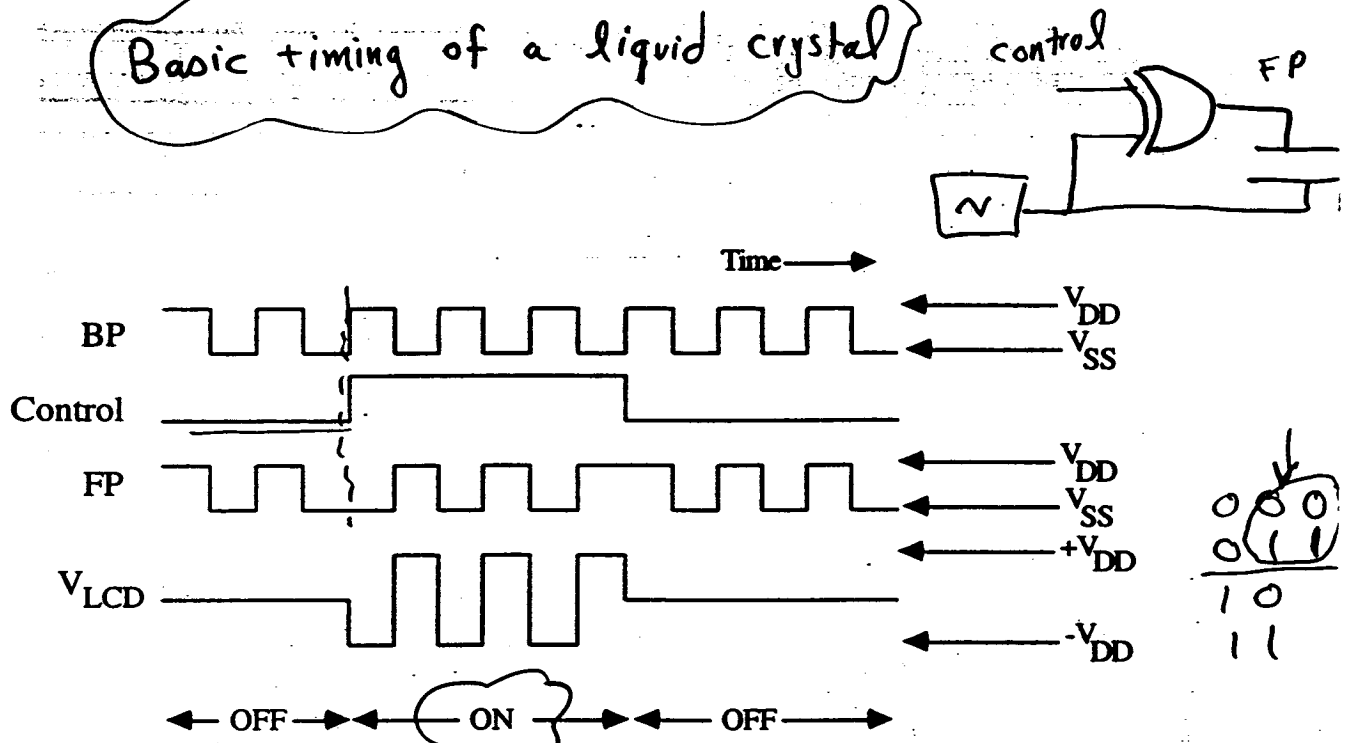 Basic timing of a liquid crystal
control
FP
~
Time
BP
V DD
V SS
Control
FP
V DD
V SS
+V DD
V LCD
-V DD
0 0 0
0 1 1
1 0
1 1
OFF ON OFF